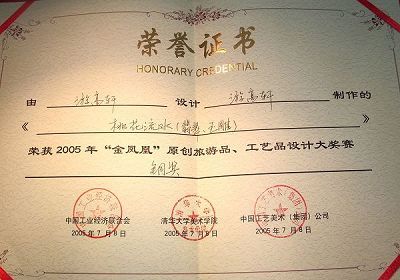 荣誉证书
HONORARY CREDENTIAL
由 游高轩 设计 游高轩 制作的
《 桃花流水(翡翠、玉雕) 》
荣获2005年“金凤凰”原创旅游品、工艺品设计大奖赛
铜奖
中国工业经济联合会 清华大学美术学院 中国工艺美术(集团)公司
2005年7月8日 2005年7月8日 2005年7月8日